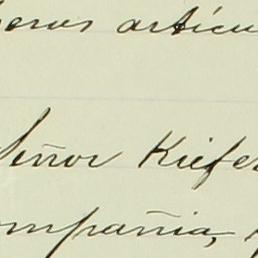 eros artícu
Señor Kiefe
ompañia,